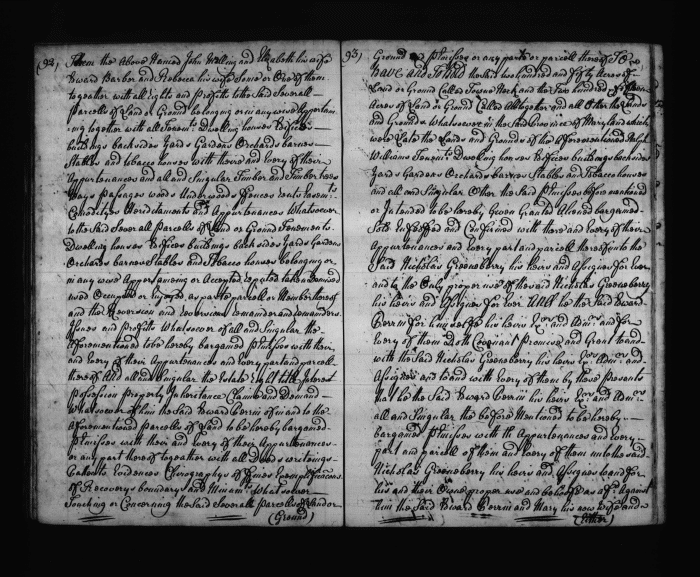 (92)
Them the Above Named John Welling and Elizabeth his wife
Edward Barber and Rebecca his wife Some or One of them
together with all rights and Profitts to the Said Severall
Parcells of Land or Ground belonging or in any wise Appertain-
ing together with all Dwelling houses Edifices
buildings backsides Yards Gardens Orchards barnes
Stables and tobacco houses with their and Every of their
Appurtenances and all and Singular Timber and Timber trees
Ways Passages woods Underwoods fences
Comodityes Heriditaments and Appurtenances Whatsoever
to the Said Severall Parcells of Land or Ground Tenements
Dwelling houses Edifices buildings backsides Yards Gardens
Orchards barnes Stables and Tobacco houses belonging or
in any wise Appertaineing or Accepted reputed taken Demised
used Occupied or injoyed as parte parcell or Member thereof
and the Reversion and Reversions remainder and remainders
Issues and Profitts Whatsoever of all and Singular the
Aforementioned to be hereby bargained Premises with their
and Every of their Appurtenances and Every part and parcell
thereof And all and Singular the Estate Right title Interest
Possession Property Inheritance Claime and Demand
Whatsoever of him the Said Edward Perrin of in and to the
Aforementioned Parcells of Land to be hereby bargained
Premises with their and Every of their Appurtenances
or any part there of together with all Deeds writeings
Evidences Chirographys of fines Exemplifications
of Recoverys boundarys and Whatsoever
Touching or Concerning the Said Severall Parcells of Land or
(Ground)
93)
Ground and Premises or any parte or parcell thereof TO
HAVE AND TO HOLD the Said two hundred and fifty Acres of
Land or Ground Called and the Two hundred
Acres of Land or Ground Called Altogether and all Other the Lands
and Grounds Whatsoever in the Said Province of Maryland which
were Late the Lands and Grounds of the Aforementioned Ralph
Williams Dwelling houses Edifices buildings backsides
Yards Gardens Orchards barnes Stables and Tobacco houses
and all and Singular Other the Said Premises before mentioned
or Intended to be hereby Given Granted Aliened bargained
Sold Enfeoffed and Confirmed with their and Every of their
Appurtenances and Every part and parcell thereof unto the
Said Nicholas Greeneberry his heirs and Assignes for Ever
and to the Only proper use of the said Nicholas Greeneberry
his heirs and Assignes for Ever AND he the Said Edward
Perrin for himself his heirs Exrs. and Admrs. and for
Every of them Doth Covenant Promise and Grant to and
with the Said Nicholas Greeneberry his heirs Exrs. Admrs. and
Assignes and to and with Every of them by these Presents
that he the Said Edward Perrin his heirs Exrs. and Admrs.
all and Singular the before Mentioned to be hereby
bargained Premises with th Appurtenances and Every
Part and parcell of them and Every of them unto the said
Nicholas Greeneberry his heirs and Assignes to and for
his and their Owne proper use and behoofe as afd. Against
him the Said Edward Perrin and Mary his now wife and
(Either)